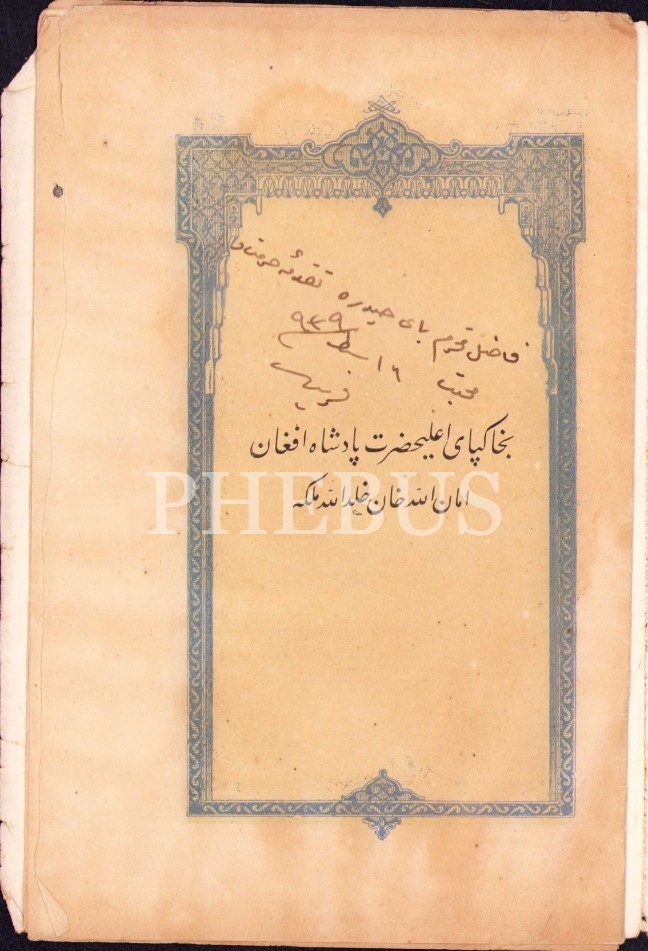 فاضل محترم بای حیدره تقدمهٔ حرمت
١٦
٩٣٩
بخاکپای اعلیحضرت پادشاه افغان
امان الله خان خلد الله ملکه
PHEBUS